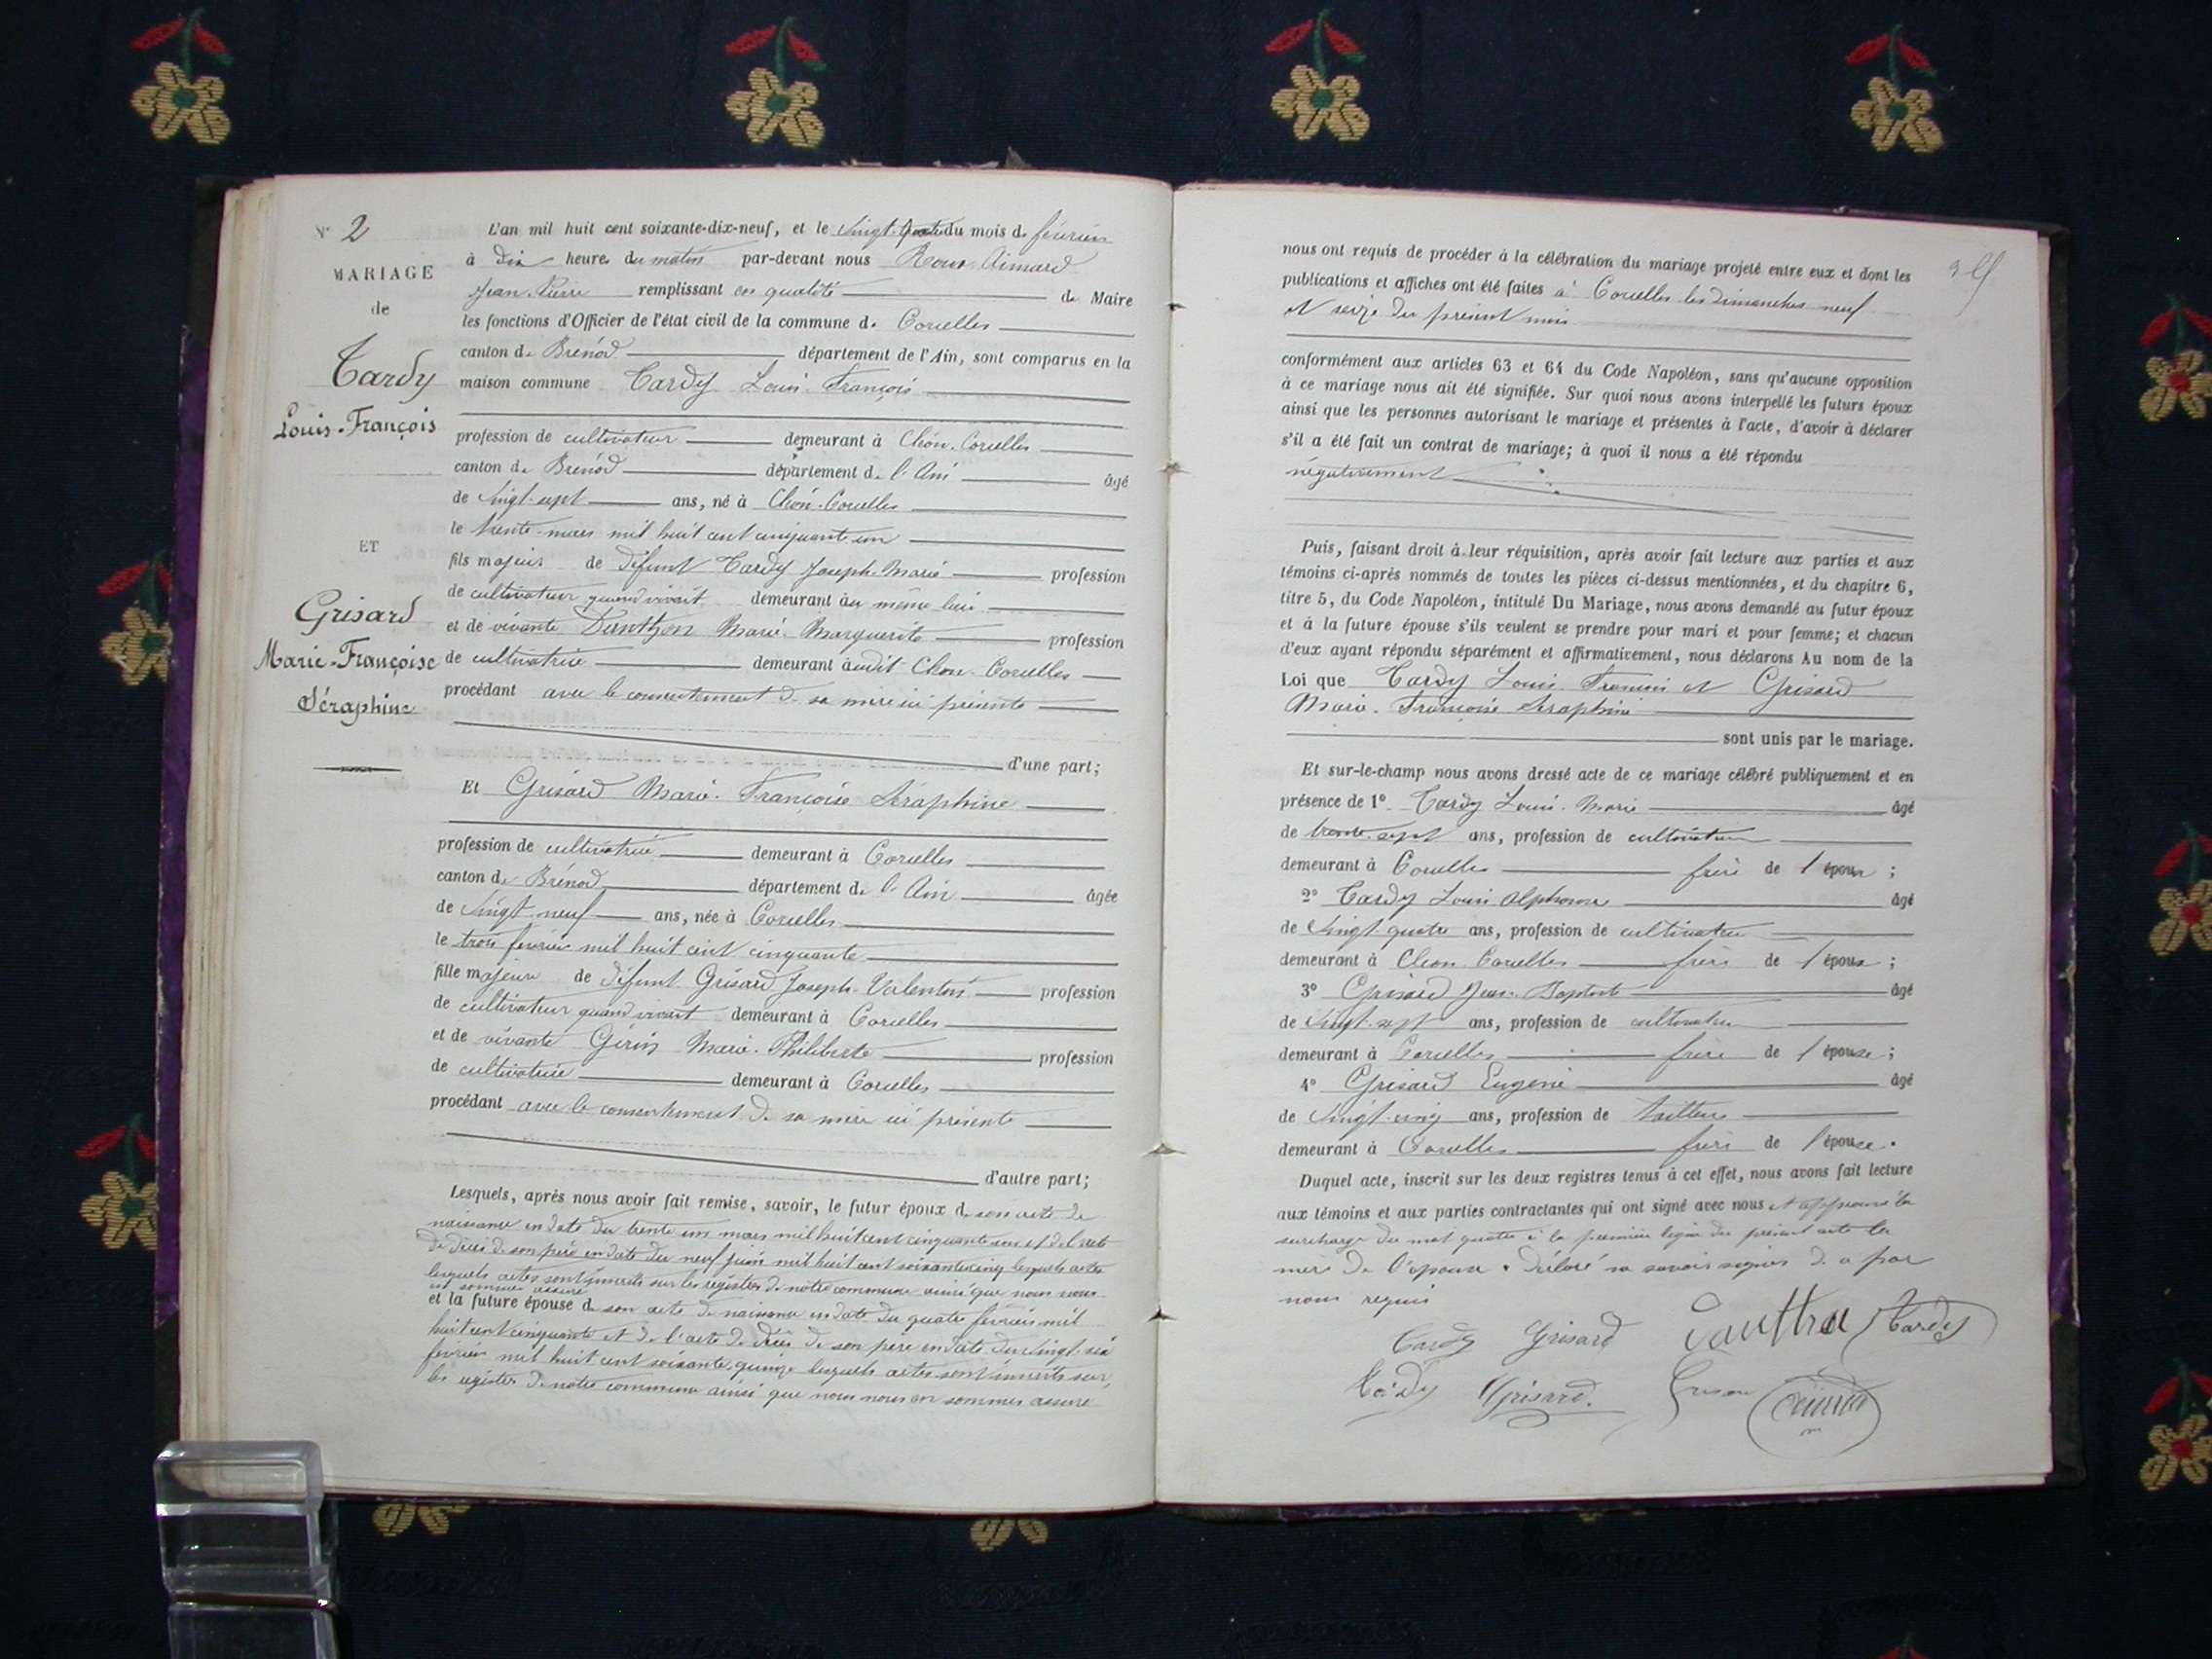 N° 2
MARIAGE
de
Tardy
Louis-François
ET
Grisard
Marie-Françoise
Séraphine
L'an mil huit cent soixante-dix-neuf, et le vingt-quatre du mois de février
à dix heures du matin par-devant nous Roux Aimard
Jean-Pierre remplissant en qualité de Maire
les fonctions d'Officier de l'état civil de la commune de Corcelles
canton de Brénod département de l'Ain, sont comparus en la
maison commune Tardy Louis-François
profession de cultivateur demeurant à Chon-Corcelles
canton de Brénod département de l'Ain âgé
de vingt-sept ans, né à Chon-Corcelles
le trente mars mil huit cent cinquante un
fils majeur de défunt Tardy Joseph-Marie profession
de cultivateur quand vivait demeurant au même lieu
et de vivante Danthon Marie-Marguerite profession
de cultivatrice demeurant audit Chon-Corcelles
procédant avec le consentement de sa mère ici présente
d'une part;
Et Grisard Marie-Françoise Séraphine
profession de cultivatrice demeurant à Corcelles
canton de Brénod département de l'Ain âgée
de vingt-neuf ans, née à Corcelles
le trois février mil huit cent cinquante
fille majeure de défunt Grisard Joseph-Valentin profession
de cultivateur quand vivait demeurant à Corcelles
et de vivante Girin Marie-Philiberte profession
de cultivatrice demeurant à Corcelles
procédant avec le consentement de sa mère ici présente
d'autre part;
Lesquels, après nous avoir fait remise, savoir, le futur époux de son acte de
naissance en date du trente un mars mil huit cent cinquante un et de l'acte
de décès de son père en date du neuf juin mil huit cent soixante cinq lesquels actes
lesquels actes sont inscrits sur les registres de notre commune ainsi que nous nous
en sommes assuré
et la future épouse de son acte de naissance en date du quatre février mil
huit cent cinquante et de l'acte de décès de son père en date du vingt-six
février mil huit cent soixante-quinze lesquels actes sont inscrits sur
les registres de notre commune ainsi que nous nous en sommes assuré
nous ont requis de procéder à la célébration du mariage projeté entre eux et dont les
publications et affiches ont été faites à Corcelles les dimanches neuf
et seize du présent mois
conformément aux articles 63 et 64 du Code Napoléon, sans qu'aucune opposition
à ce mariage nous ait été signifiée. Sur quoi nous avons interpellé les futurs époux
ainsi que les personnes autorisant le mariage et présentes à l'acte, d'avoir à déclarer
s'il a été fait un contrat de mariage; à quoi il nous a été répondu
négativement
Puis, faisant droit à leur réquisition, après avoir fait lecture aux parties et aux
témoins ci-après nommés de toutes les pièces ci-dessus mentionnées, et du chapitre 6,
titre 5, du Code Napoléon, intitulé Du Mariage, nous avons demandé au futur époux
et à la future épouse s'ils veulent se prendre pour mari et pour femme; et chacun
d'eux ayant répondu séparément et affirmativement, nous déclarons Au nom de la
Loi que Tardy Louis François et Grisard
Marie-Françoise Séraphine
sont unis par le mariage.
Et sur-le-champ nous avons dressé acte de ce mariage célébré publiquement et en
présence de 1° Tardy Louis-Marie âgé
de trente-sept ans, profession de cultivateur
demeurant à Corcelles frère de l'époux;
2° Tardy Louis Alphonse âgé
de vingt quatre ans, profession de cultivateur
demeurant à Chon Corcelles frère de l'époux;
3° Grisard Jean-Baptiste âgé
de vingt-sept ans, profession de cultivateur
demeurant à Corcelles frère de l'épouse;
4° Grisard Eugène âgé
de vingt-cinq ans, profession de tailleur
demeurant à Corcelles frère de l'épouse.
Duquel acte, inscrit sur les deux registres tenus à cet effet, nous avons fait lecture
aux témoins et aux parties contractantes qui ont signé avec nous et approuvé la
surcharge du mot quatre à la première ligne du présent acte la
mère de l'épouse a déclaré ne savoir signer de ce par
nous requis
Tardy Grisard Tardy
Tardy Grisard